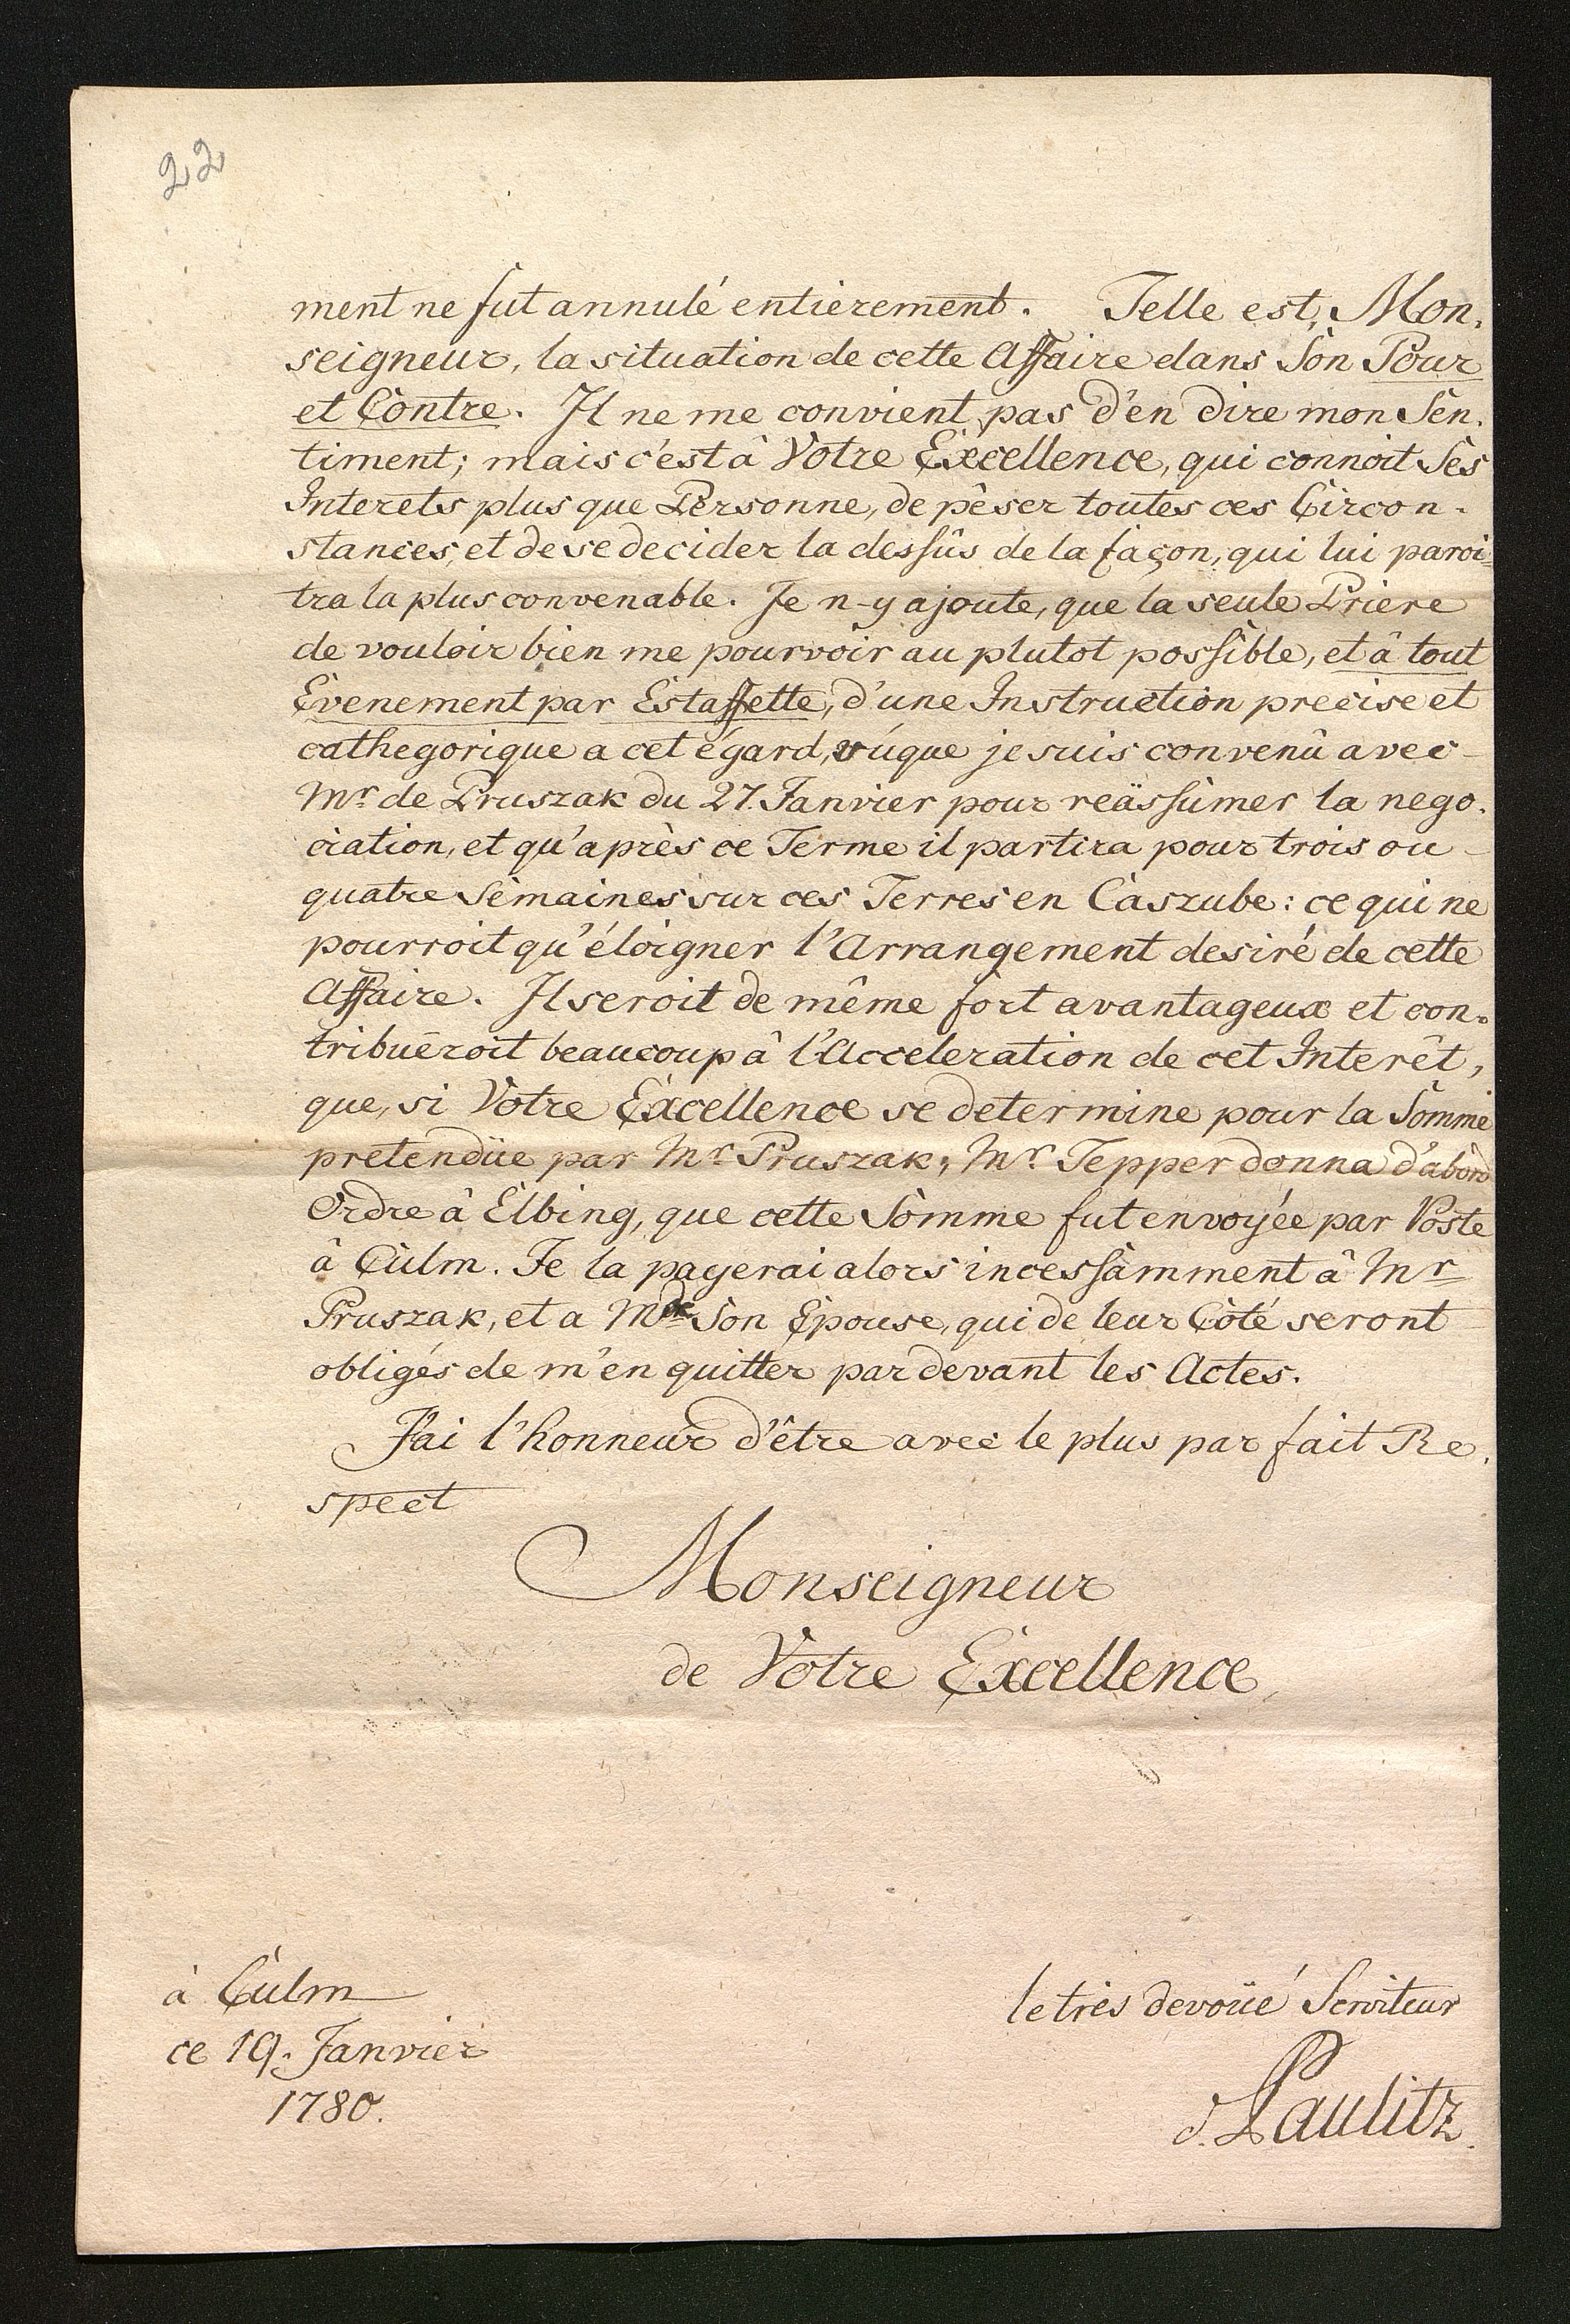 22
ment ne fut annulé entierement. Telle est, Mon.
seigneur, la situation de cette Affaire dans Son Pour
et Contre. Il ne me convient pas d'en dire mon Sen.
timent; mais c'est à Votre Excellence, qui connoit Ses
Interets plus que Personne, de pèser toutes ces Circon.
stances, et de se decider la dessûs de la façon, qui lui paroi=
tra la plus convenable. Je n-y ajoute, que la seule Priere
de vouloir bien me pourvoir au plutot possible, et â tout
Evenement par Estaffette, d'une Instruction precise et
cathegorique a cet égard, vúque je suis convenû avec
Mr. de Pruszak du 27. Janvier pour reässûmer la nego.
ciation, et qu'après ce Terme il partira pour trois ou
quatre Semaines sur ces Terres en Caszube: ce qui ne
pourroit qu'éloigner l'Arrangement desiré de cette
Affaire. Il seroit de même fort avantageux et con.
tribuëroit beaucoup â l'Acceleration de cet Interêt,
que, si Votre Excellence se determine pour la Somme
pretendüe par Mr. Pruszak, Mr. Tepper donna d'abord
Ordre â Elbing, que cette Somme fut envoyée par Poste
â Culm. Je la payerai alors incessâmment â Mr
Pruszak, et a Mde Son Epouse, qui de leur Côté seront
obligés de m'en quitter pardevant les Actes.
J'ai l'honneur d'être avec le plus parfait Re.
spect
Monseigneur
de Votre Excellence
à Culm
ce 19. Janvier
1780.
le très devoüé Serviteur
d. Paulitz.